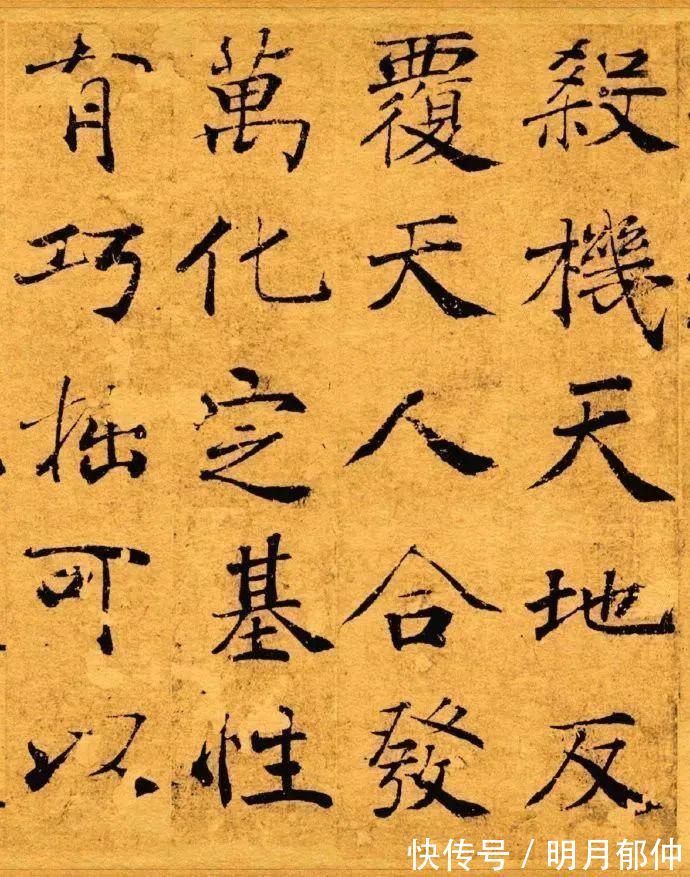 殺機天地反
覆天人合發
萬化定基性
有巧拙可以
快传号 / 明月郁仲